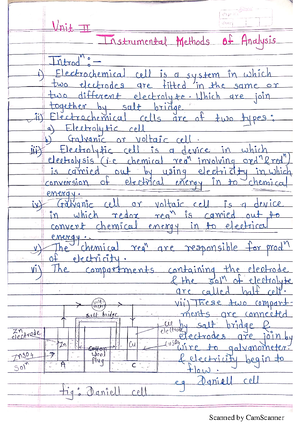 Unit II
Instrumental Methods of Analysis
Introdⁿ :-
i) Electrochemical cell is a system in which
two electrodes are fitted in the same or
two different electrolyte. Which are join
together by salt bridge.
ii) Electrochemical cells are of two types:
a) Electrolytic cell
b) Galvanic or voltaic cell.
iii) Electrolytic cell is a device in which
electrolysis (i.e chemical reaⁿ involving oxidⁿ & redⁿ)
is carried out by using electricity in which
conversion of electrical energy in to chemical
energy.
iv) Galvanic cell or voltaic cell is a device
in which redox reaⁿ is carried out to
convert chemical energy in to electrical
energy.
v) The chemical reaⁿ are responsible for prodⁿ
of electricity.
vi) The compartments containing the electrode
& the solⁿ of electrolyte
are called half cell.
vii) These two compart-
ments are connected
by salt bridge &
electrodes are join by
wire to galvanometer
& electricity begin to
flow.
e.g Daniell cell
Salt bridge
Zn
electrode
Zn
Cotton
wool
plug
Cu
Cu
ZnSO₄
solⁿ
A
C
fig: Daniell cell
Scanned by CamScanner